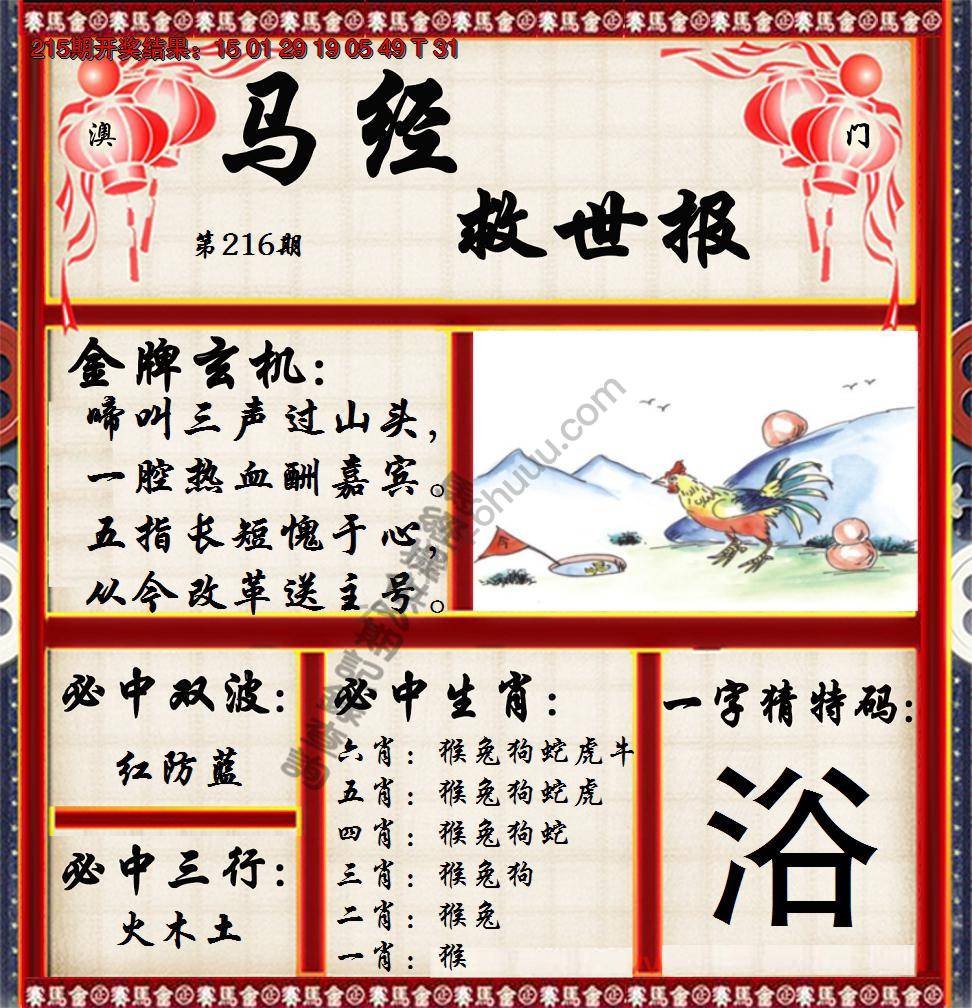 赛马会
215期开奖结果：15 01 29 19 05 49 T 31
澳
门
马经
救世报
第216期
金牌玄机：
啼叫三声过山头，
一腔热血酬嘉宾。
五指长短愧于心，
从今改革送主号。
必中双波：
红防蓝
必中三行：
火木土
必中生肖：
六肖：猴兔狗蛇虎牛
五肖：猴兔狗蛇虎
四肖：猴兔狗蛇
三肖：猴兔狗
二肖：猴兔
一肖：猴
一字猜特码：
浴